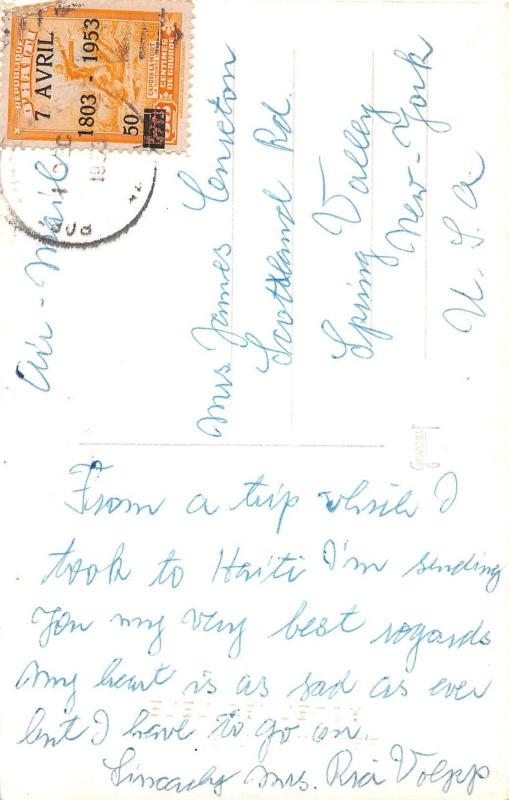 REPUBLIQUE
D'HAITI
7 AVRIL
1803 - 1953
50
CENTIMES
DE GOURDE
Air-Mail
Mrs. James
Scottland Rd.
Spring Valley
New-York
U. S. A
From a trip which I
took to Haiti I'm sending
you my very best regards
My heart is as sad as ever
but I have to go on.
Sincerely Mrs. Ria Volpp